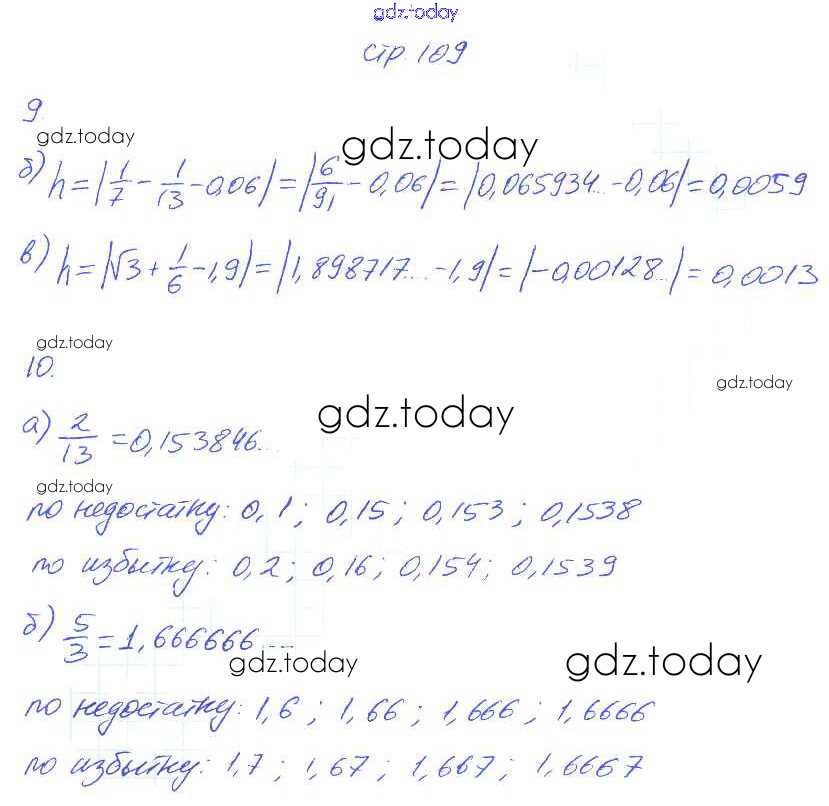 gdz.today
стр. 109
9.
gdz.today
gdz.today
б) h = |1/7 - 1/13 - 0,06| = |6/91 - 0,06| = |0,065934... - 0,06| = 0,0059
в) h = |√3 + 1/6 - 1,9| = |1,898717... - 1,9| = |-0,00128...| = 0,0013
gdz.today
10.
gdz.today
gdz.today
а) 2/13 = 0,153846...
gdz.today
по недостатку: 0,1; 0,15; 0,153; 0,1538
по избытку: 0,2; 0,16; 0,154; 0,1539
б) 5/3 = 1,666666...
gdz.today
gdz.today
по недостатку: 1,6; 1,66; 1,666; 1,6666
по избытку: 1,7; 1,67; 1,667; 1,6667